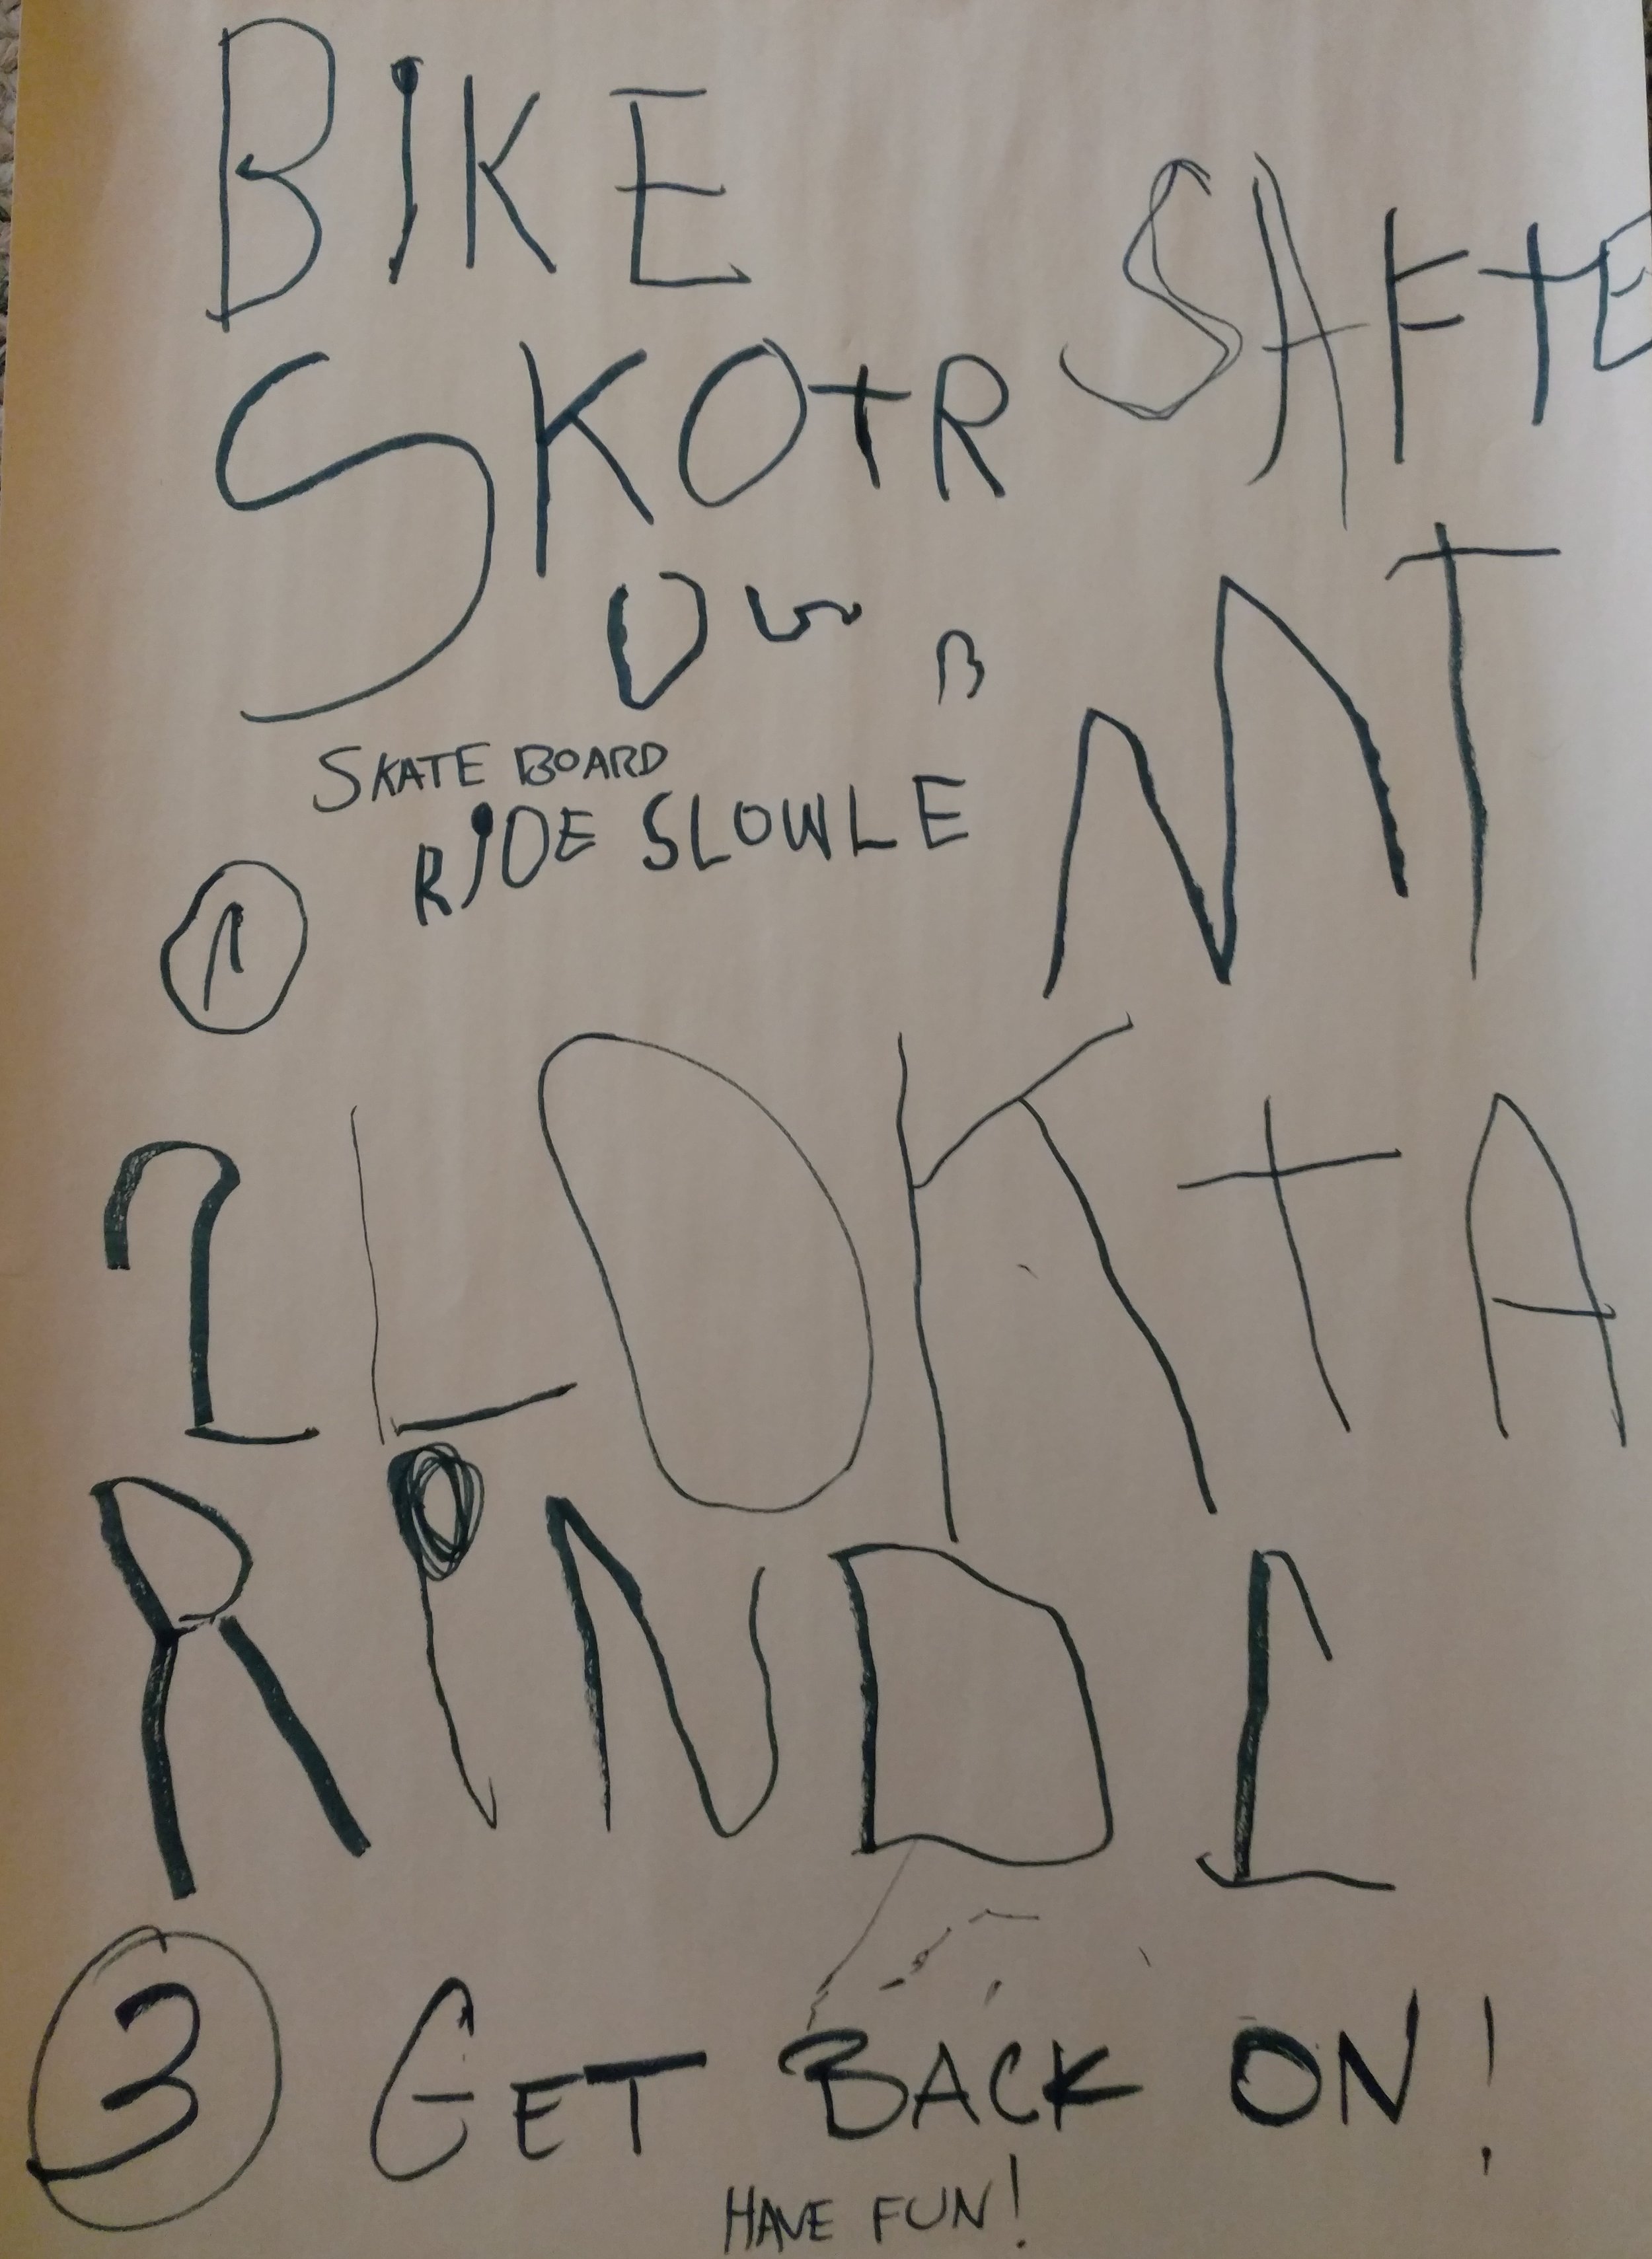 BIKE
SKOtR SAFtE
MT
SKATE BOARD
RIDE SLOWLE
1
2 LOK tA
RiND I
3 GET BACK ON!
HAVE FUN!